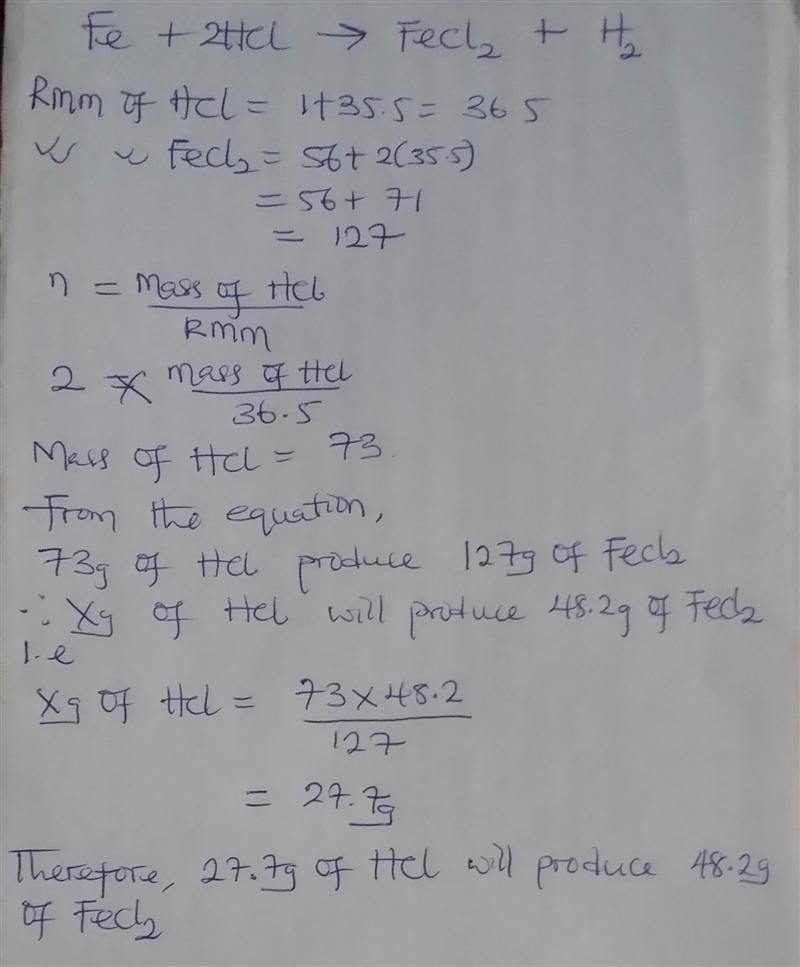 Fe + 2HCl → FeCl₂ + H₂
Rmm of HCl = 1+35.5 = 36.5
〃 〃 FeCl₂ = 56+ 2(35.5)
= 56 + 71
= 127
n = Mass of HCl
Rmm
2 = mass of HCl
36.5
Mass of HCl = 73.
From the equation,
73g of HCl produce 127g of FeCl₂
∴ Xg of HCl will produce 48.2g of FeCl₂
I.e
Xg of HCl = 73 x 48.2
127
= 27.7g
Therefore, 27.7g of HCl will produce 48.2g
of FeCl₂